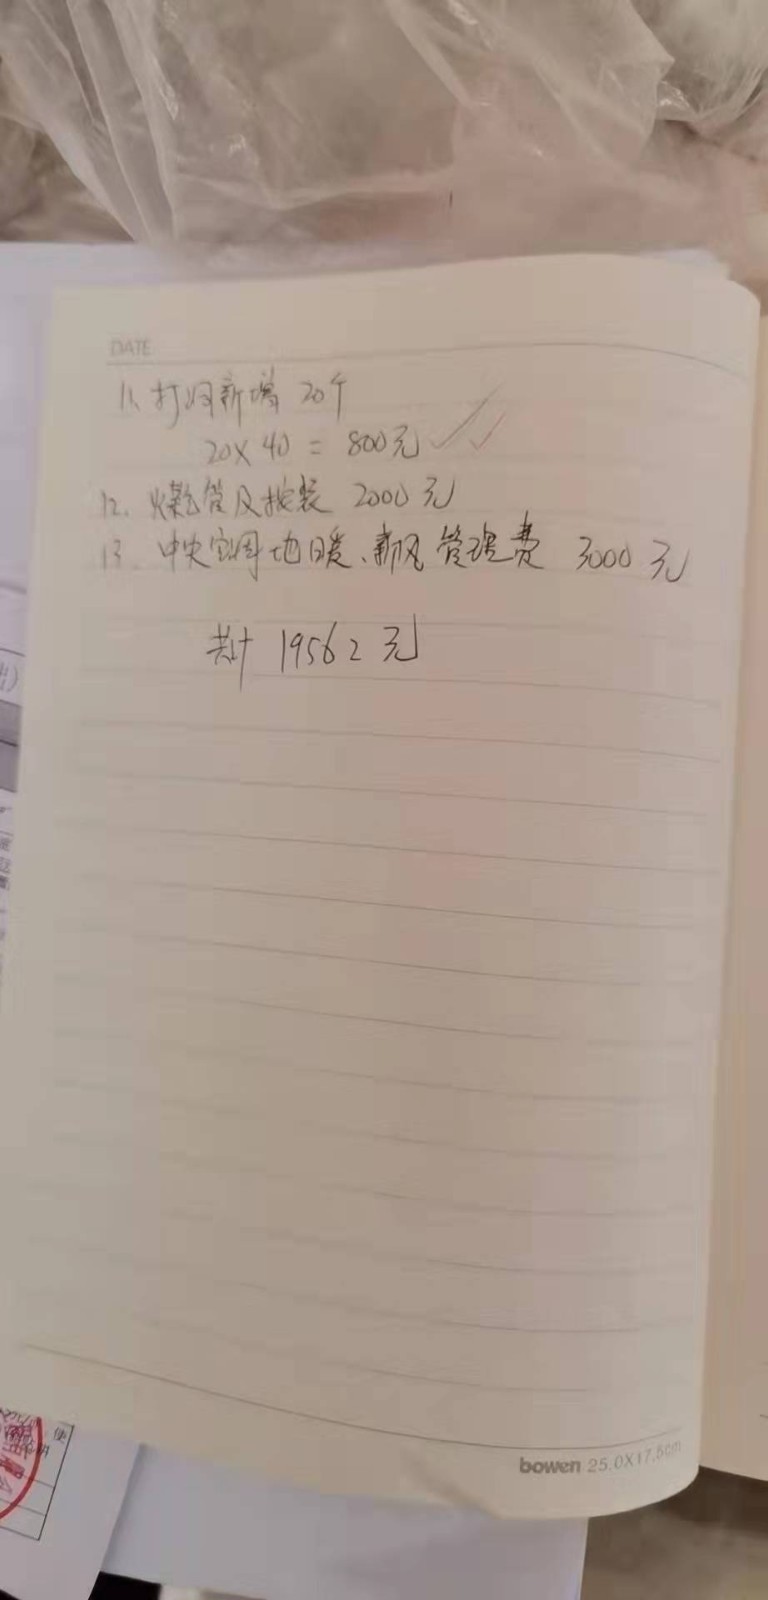 DATE
11. 打洞新增 20个
20×40 = 800元
12. 燃气管及按装 2000元
13. 中央空调地暖、新风管理费 3000元
共计 19562元
bowen 25.0X17.5cm